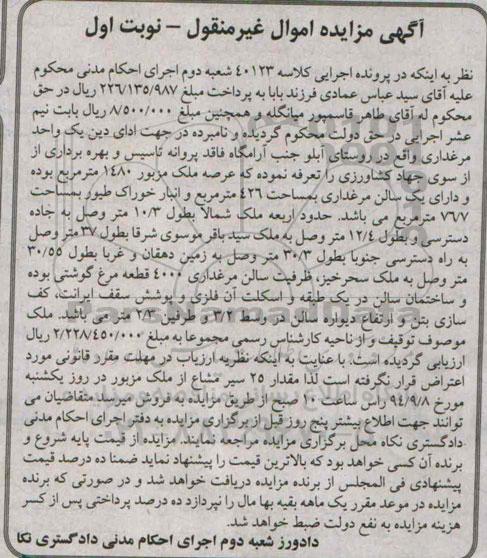 آگهی مزایده اموال غیرمنقول – نوبت اول
نظر به اینکه در پرونده اجرایی کلاسه ۴۰۱۲۳ شعبه دوم اجرای احکام مدنی محکوم
علیه آقای سید عباس عمادی فرزند بابا به پرداخت مبلغ ۲۲۶/۱۳۵/۹۸۷ ریال در حق
محکوم له آقای طاهر قاسمپور میانگله و همچنین مبلغ ۸/۵۰۰/۰۰۰ ریال بابت نیم
عشر اجرایی در حق دولت محکوم گردیده و نامبرده در جهت ادای دین یک واحد
مرغداری واقع در روستای آبلو جنب آرامگاه فاقد پروانه تاسیس و بهره برداری از
سوی جهاد کشاورزی را تعرفه نموده که عرصه ملک مزبور ۱۴۸۰ مترمربع بوده
و دارای یک سالن مرغداری بمساحت ۴۲۶ مترمربع و انبار خوراک طیور بمساحت
۷۶/۷ مترمربع می باشد. حدود اربعه ملک شمالا بطول ۱۰/۳ متر وصل به جاده
دسترسی و بطول ۱۲/۴ متر وصل به ملک سید باقر موسوی شرقا بطول ۳۷ متر وصل
به راه دسترسی جنوبا بطول ۳۰/۳ متر وصل به زمین دهقان و غربا بطول ۳۰/۵۵
متر وصل به ملک سحرخیز، ظرفیت سالن مرغداری ۴۰۰۰ قطعه مرغ گوشتی بوده
و ساختمان سالن در یک طبقه و اسکلت آن فلزی و پوشش سقف ایرانیت، کف
سازی بتن و ارتفاع دیواره سالن در وسط ۳/۲ و طرفین ۲/۳ متر می باشد. ملک
موصوف توقیف و از ناحیه کارشناس رسمی مجموعا به مبلغ ۲/۲۲۸/۴۵۰/۰۰۰ ریال
ارزیابی گردیده است. با عنایت به اینکه نظریه ارزیاب در مهلت مقرر قانونی مورد
اعتراض قرار نگرفته است لذا مقدار ۲۵ سیر مشاع از ملک مزبور در روز یکشنبه
مورخ ۹۴/۹/۸ راس ساعت ۱۰ صبح از طریق مزایده به فروش میرسد متقاضیان می
توانند جهت اطلاع بیشتر پنج روز قبل از برگزاری مزایده به دفتر اجرای احکام مدنی
دادگستری نکاه محل برگزاری مزایده مراجعه نمایند. مزایده از قیمت پایه شروع و
برنده آن کسی خواهد بود که بالاترین قیمت را پیشنهاد نماید ضمنا ده درصد قیمت
پیشنهادی فی المجلس از برنده مزایده دریافت خواهد شد و در صورتی که برنده
مزایده در موعد مقرر یک ماهه بقیه بها مال را نپردازد ده درصد پرداختی پس از کسر
هزینه مزایده به نفع دولت ضبط خواهد شد.
دادورز شعبه دوم اجرای احکام مدنی دادگستری نکا